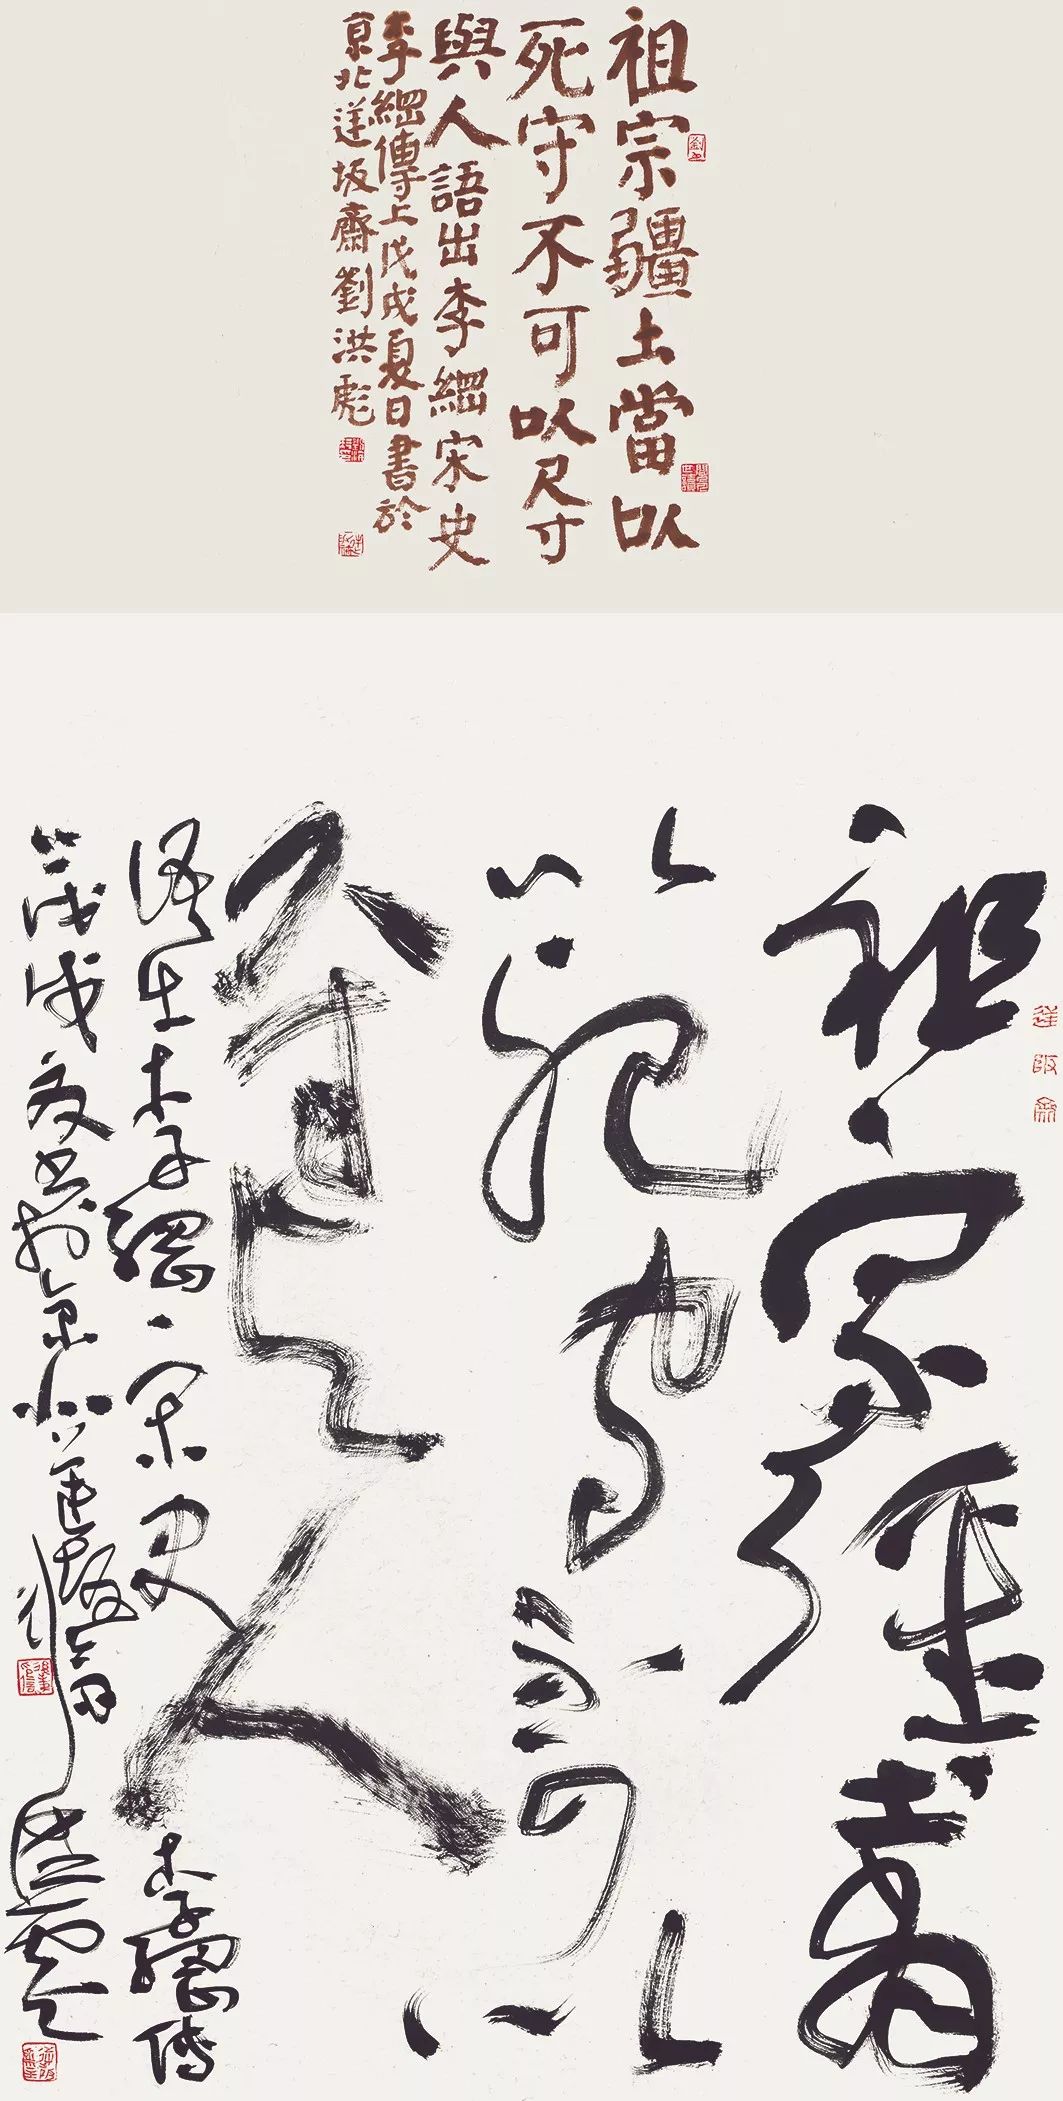 祖宗疆土當以
死守不可以尺寸
與人語出李綱宋史
李綱傳上戊戌夏日書於
京北逆坂齋劉洪彪
逆坂齋
祖宗疆土當
以死守不可以
尺寸與人
語出李綱宋史李綱傳
戊戌夏書於京北逆坂齋劉洪彪